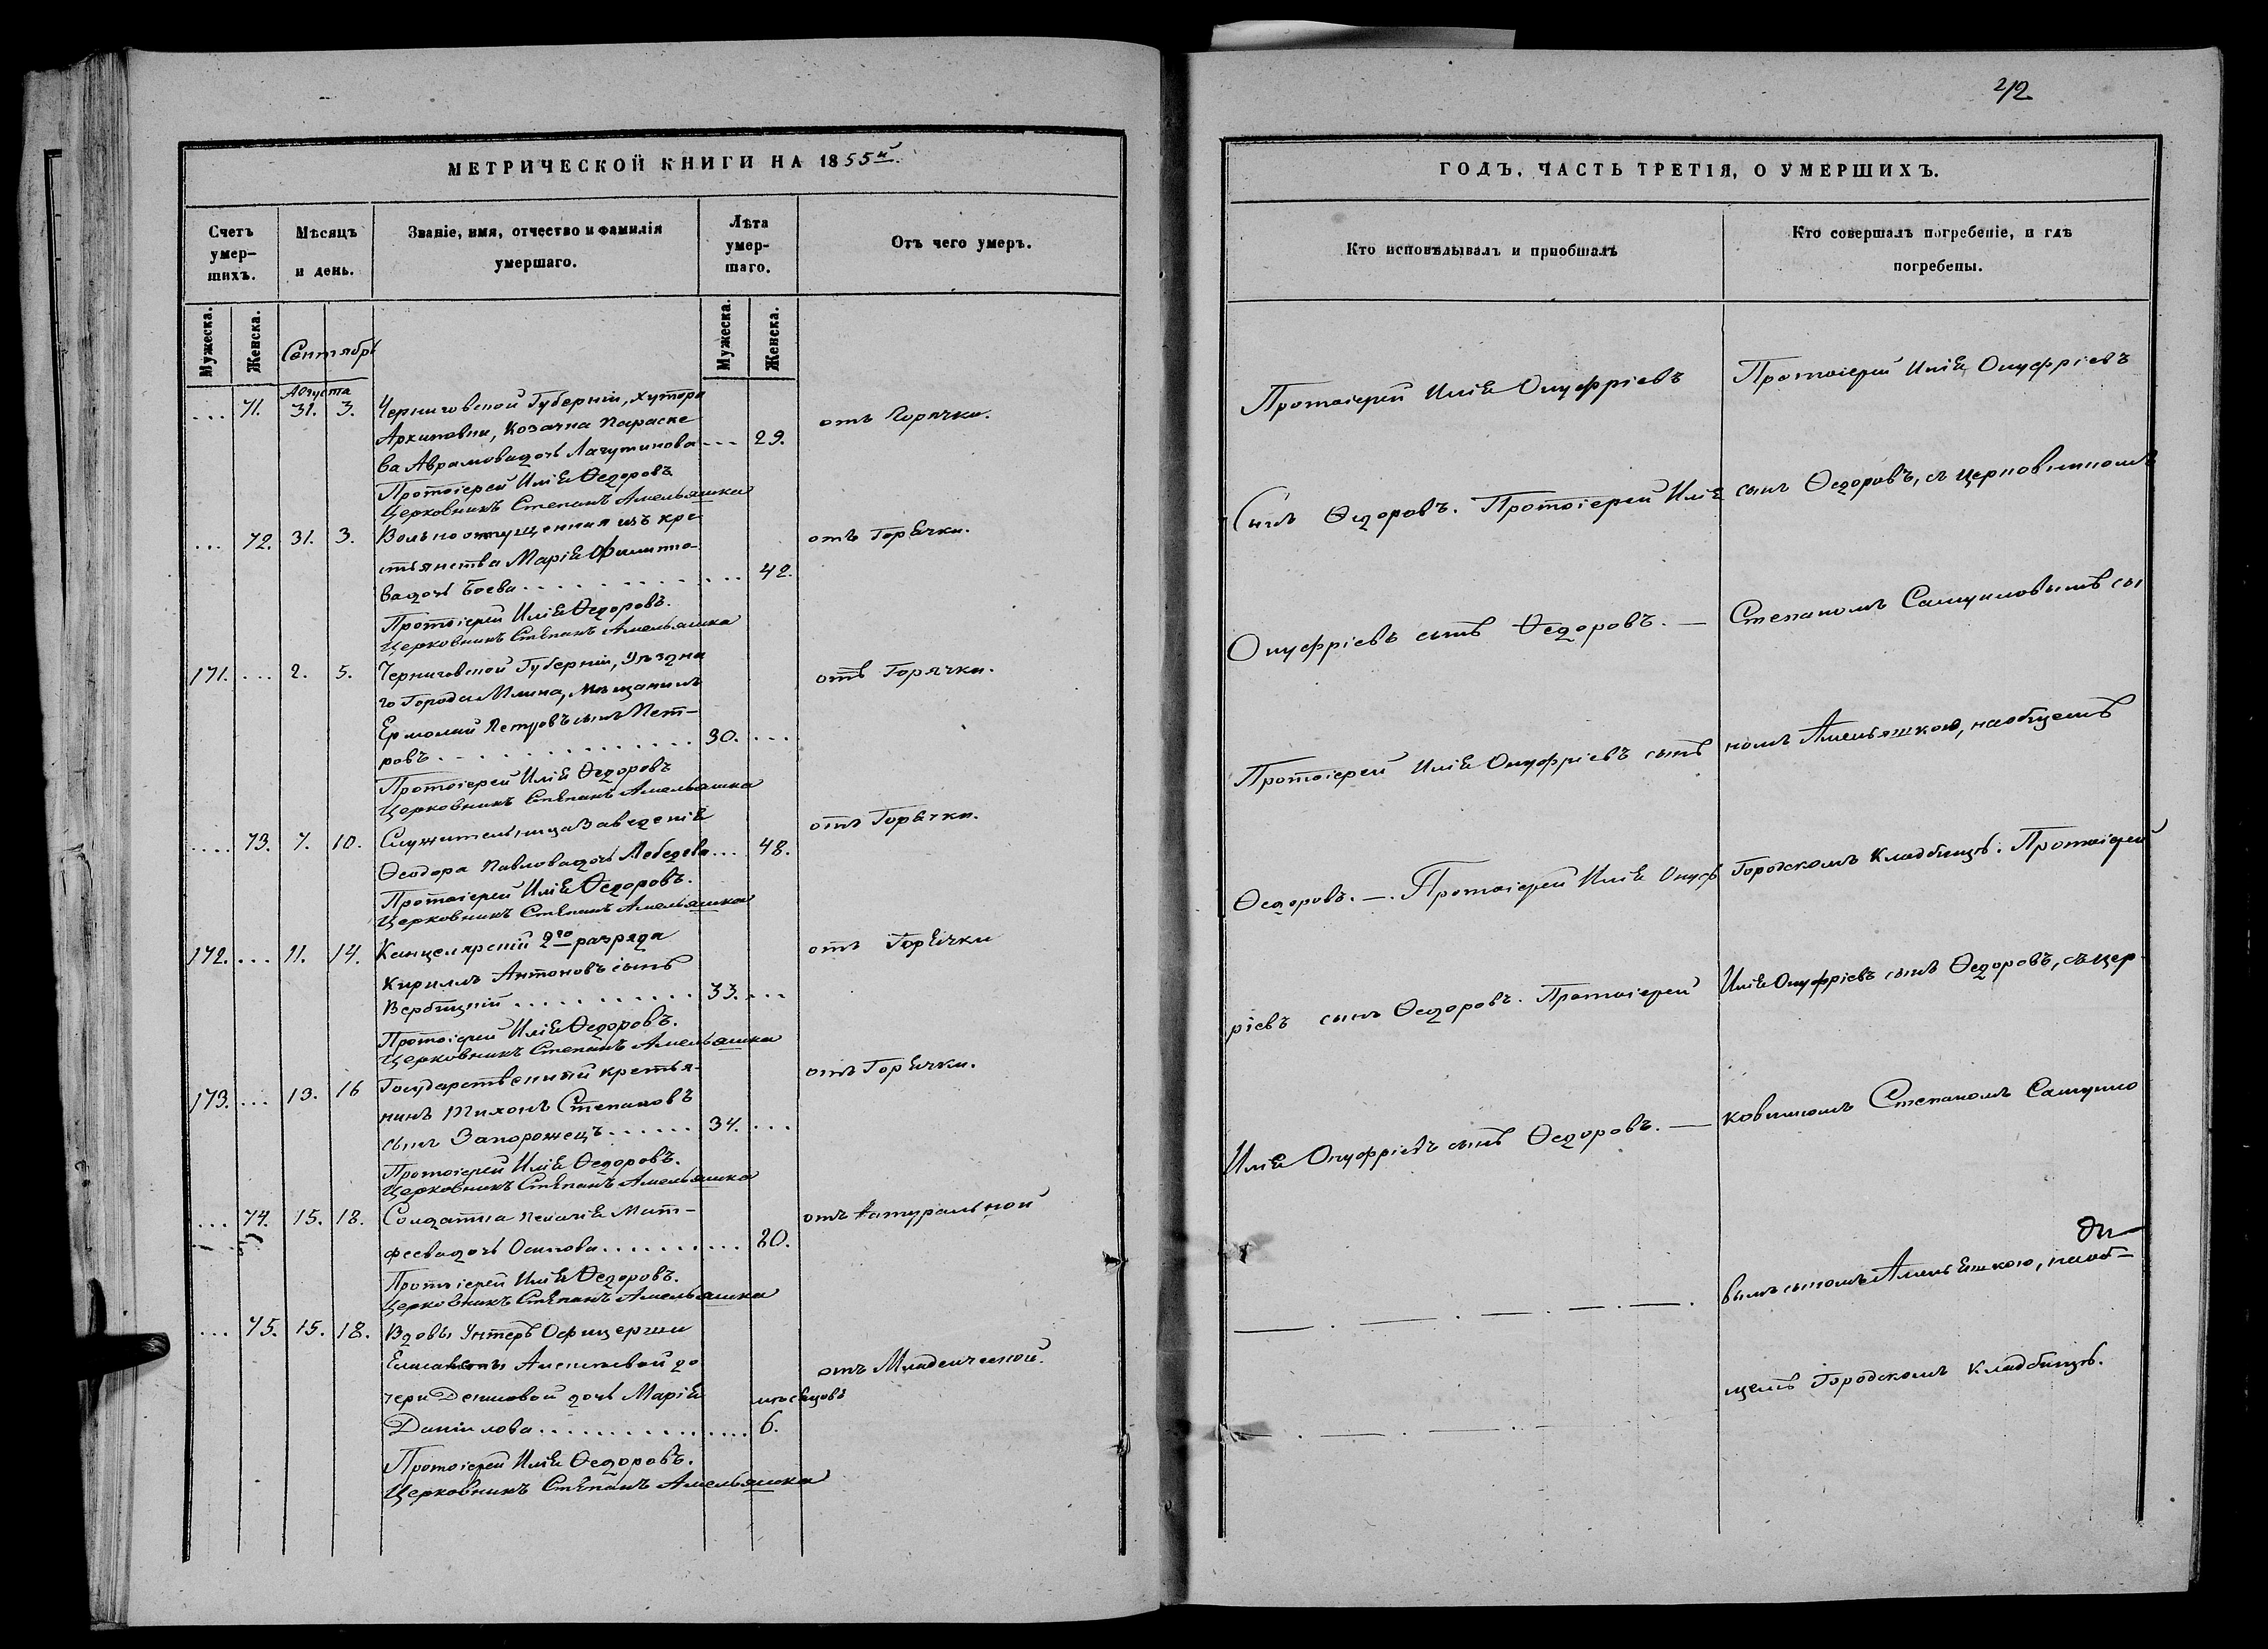 МЕТРИЧЕСКОЙ КНИГИ НА 1855й.
Счетъ умер-шихъ.
Мѣсяцъ и день.
Званіе, имя, отчество и фамилія умершаго.
Лѣта умер-шаго.
Отъ чего умеръ.
Мужеска.
Женска.
Мужеска.
Женска.
Сентябрь
Августа
... 71. 31. 3. Черниговской Губерніи, хутора
Архиповки, Козачка Параске
ва Аврамова дочь ... 29.
отъ Горячки.
Протоіерей Илія Ѳедоровъ
Церковникъ Степанъ Амельяшка
... 72. 31. 3. Вольноотпущенная изъ кре-
стьянства Марія Филипо-
ва дочь Боева ... 42.
отъ Горячки.
Протоіерей Илія Ѳедоровъ.
Церковникъ Степанъ Амельяшка
171. ... 2. 5. Черниговской Губерніи, Уѣздна
го Города Мглина, Мѣщанинъ
Ермолай Петровъ сынъ Пет-
ровъ ... 30. ...
отъ Горячки.
Протоіерей Илія Ѳедоровъ
Церковникъ Степанъ Амельяшка
.... 73. 7. 10. Служительница Заведенія
Ѳеодора Павлова дочь Лебедева ... 48.
отъ Горячки.
Протоіерей Илія Ѳедоровъ.
Церковникъ Степанъ Амельяшка
172. ... 11. 14. Канцелярскій 2го разряда
Кириллъ Антоновъ сынъ
Вербицкій ... 33. ...
отъ Горячки
Протоіерей Илія Ѳедоровъ.
Церковникъ Степанъ Амельяшка
173. ... 13. 16 Государственный крестья-
нинъ Тихонъ Степановъ
сынъ Запорожецъ ... 34. ...
отъ Горячки.
Протоіерей Илія Ѳедоровъ.
Церковникъ Степанъ Амельяшка
... 74. 15. 18. Солдатка Пелагія Мат-
феева дочь Осипова ... 20.
отъ Натуральной
Протоіерей Илія Ѳедоровъ.
Церковникъ Степанъ Амельяшка
... 75. 15. 18. Вдовы Унтеръ Офицерши
Елисаветы до
чери Денисовой дочь Марія мѣсяцовъ
Данилова ... 6.
отъ Младенческой.
Протоіерей Илія Ѳедоровъ.
Церковникъ Степанъ Амельяшка
212
ГОДЪ, ЧАСТЬ ТРЕТІЯ, О УМЕРШИХЪ.
Кто исповѣдывалъ и пріобщалъ
Кто совершалъ погребеніе, и гдѣ погребены.
Протоіерей Илія Онуфріевъ
Сынъ Ѳедоровъ. Протоіерей Илія
Онуфріевъ сынъ Ѳедоровъ. —
Протоіерей Илія Онуфріевъ сынъ
Ѳедоровъ. —. Протоіерей Илія Онуф
ріевъ сынъ Ѳедоровъ. Протоіерей
Илія Онуфріевъ сынъ Ѳедоровъ. —
Протоіерей Илія Онуфріевъ
сынъ Ѳедоровъ, съ церковникомъ
Степаномъ Самуиловымъ сы
номъ Амельяшкою, на общемъ
Городскомъ Кладбищѣ. Протоіерей
Илія Онуфріевъ сынъ Ѳедоровъ, съ цер-
ковникомъ Степаномъ Самуило
вымъ сыномъ Амельяшкою, на об-
щемъ Городскомъ Кладбищѣ.